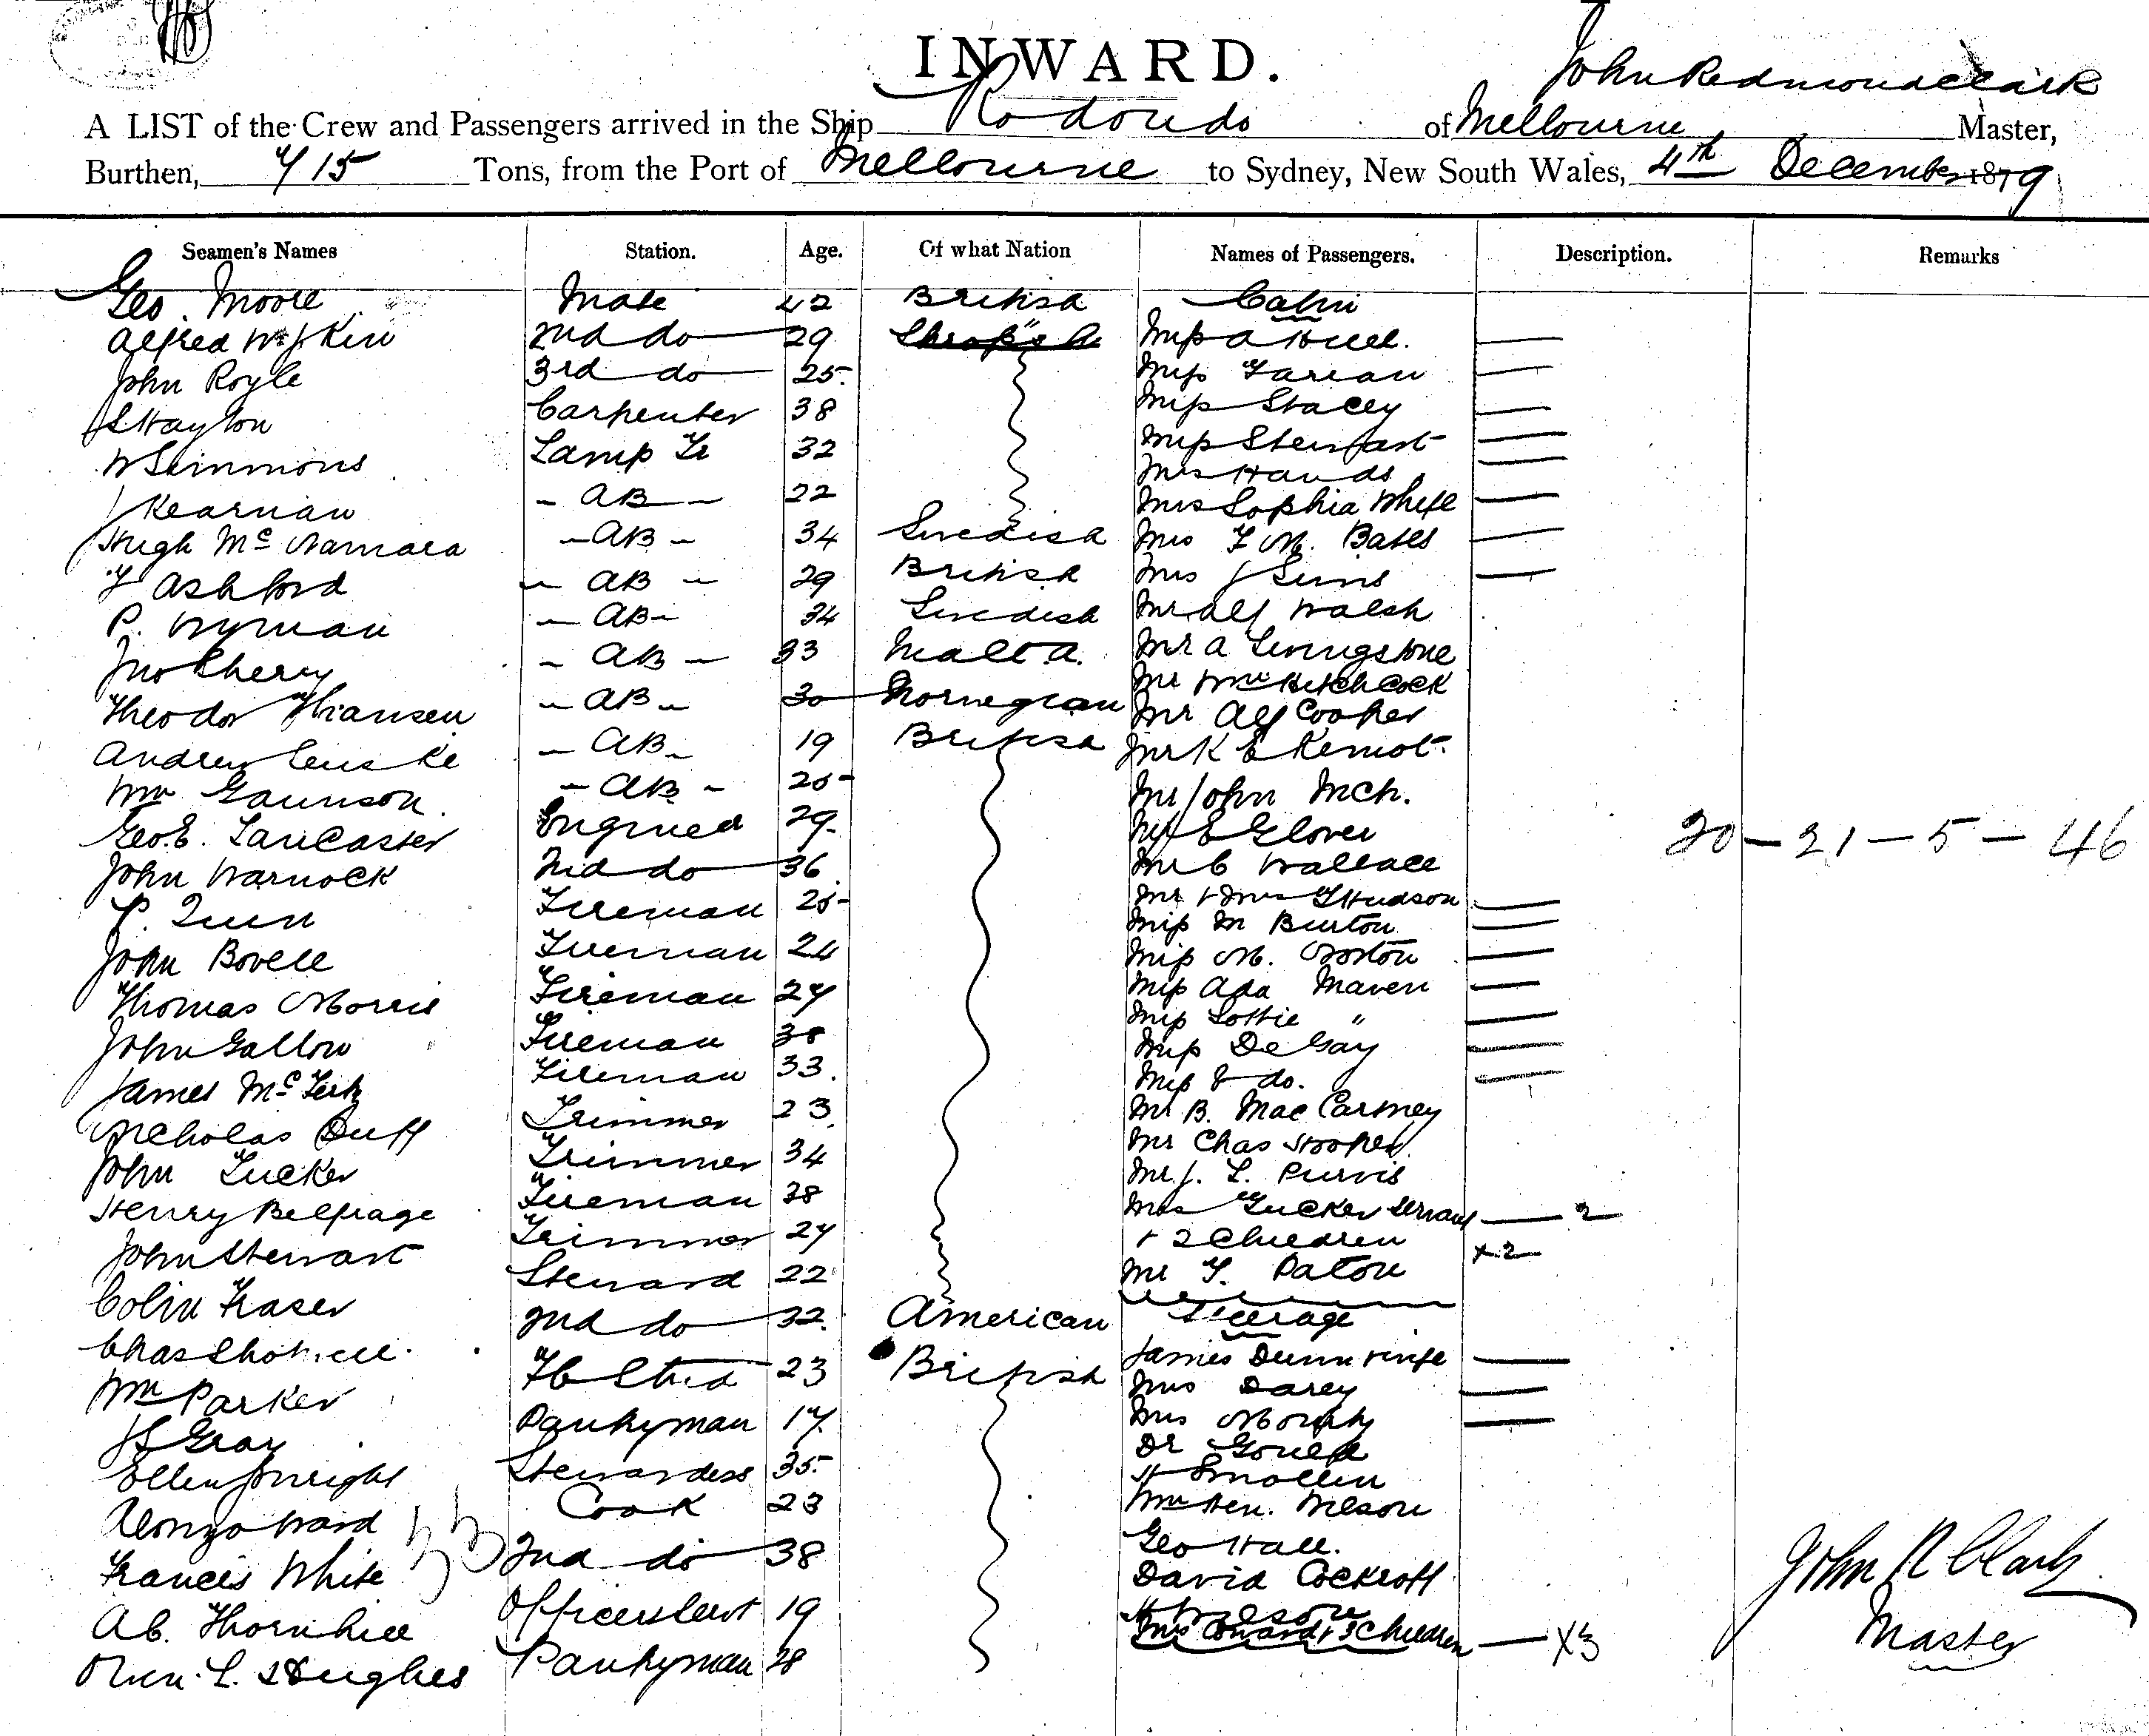 INWARD.
John Redmond Clark
A LIST of the Crew and Passengers arrived in the Ship Rodondo of Melbourne Master,
Burthen, 715 Tons, from the Port of Melbourne to Sydney, New South Wales, 4th December 1879
Seamen's Names Station. Age. Of what Nation Names of Passengers. Description. Remarks
Geo. Moore Mate 42 British Cabin
Alfred 2nd do 29 Miss A Hull.
John Royle 3rd do 25. Miss
Hayton Carpenter 38 Miss Stacey
W Simmons Lamp Tr 32 Miss Stewart
Mrs Hands
J Kearnan - AB - 22 Mrs Sophia White
Hugh McNamara - AB - 34 Swedish Mrs F. N. Bates
F Ashford - AB - 29 British Mrs J Sims
P. Wyman - AB - 34 Swedish Mr Alf Walsh
Jno Cherry - AB - 33 Malta. Mr A Livingstone
Mr Wm Hitchcock
Theodor Hansen - AB - 30 Norwegian Mr Alf Cooper
Andrew - AB - 19 British Mr K E Kernot.
Wm Gaunson. - AB - 25 Mr John
Geo. E. Lancaster Engineer 29 Mr E Glover
20 - 21 - 5 - 46
John Warnock 2nd do 36 Mr C Wallace
Mr & Mrs Hudson
P. Quin Fireman 25 Miss M Burton
John Bovell Fireman 24 Miss N. Norton
Thomas Norris Fireman 27 Miss Ada Maven
Miss Lottie "
John Gallow Fireman 38 Miss DeGay
James Fireman 33. Miss & do.
Nicholas Duff Trimmer 23 Mr B. MacCartney
Mr Chas Hooper
John Tucker Trimmer 34 Mr J. L. Purvis
Henry Belfrage Fireman 28 Mrs Tucker servant 2
John Stewart Trimmer 27 + 2 Children x 2
Colin Fraser Steward 22 Mr F. Paton
Chas 2nd do 32. American Steerage
Wm Parker 23 British James Dunn & wife
Mrs Darey
Gray Pantryman 17 Mrs Murphy
Dr Gould
Ellen Wright Stewardess 35. H Smollin
Alonzo Ward Cook 23 Wm Hen. Wilson
33
Francis White 2nd do 38 Geo Hall.
David Cockroft
John R Clark
A C. Thornhill Officers Servt 19 H Wilson
Mrs Coward & 3 Children X3
Master
Owen L. Hughes Pantryman 28